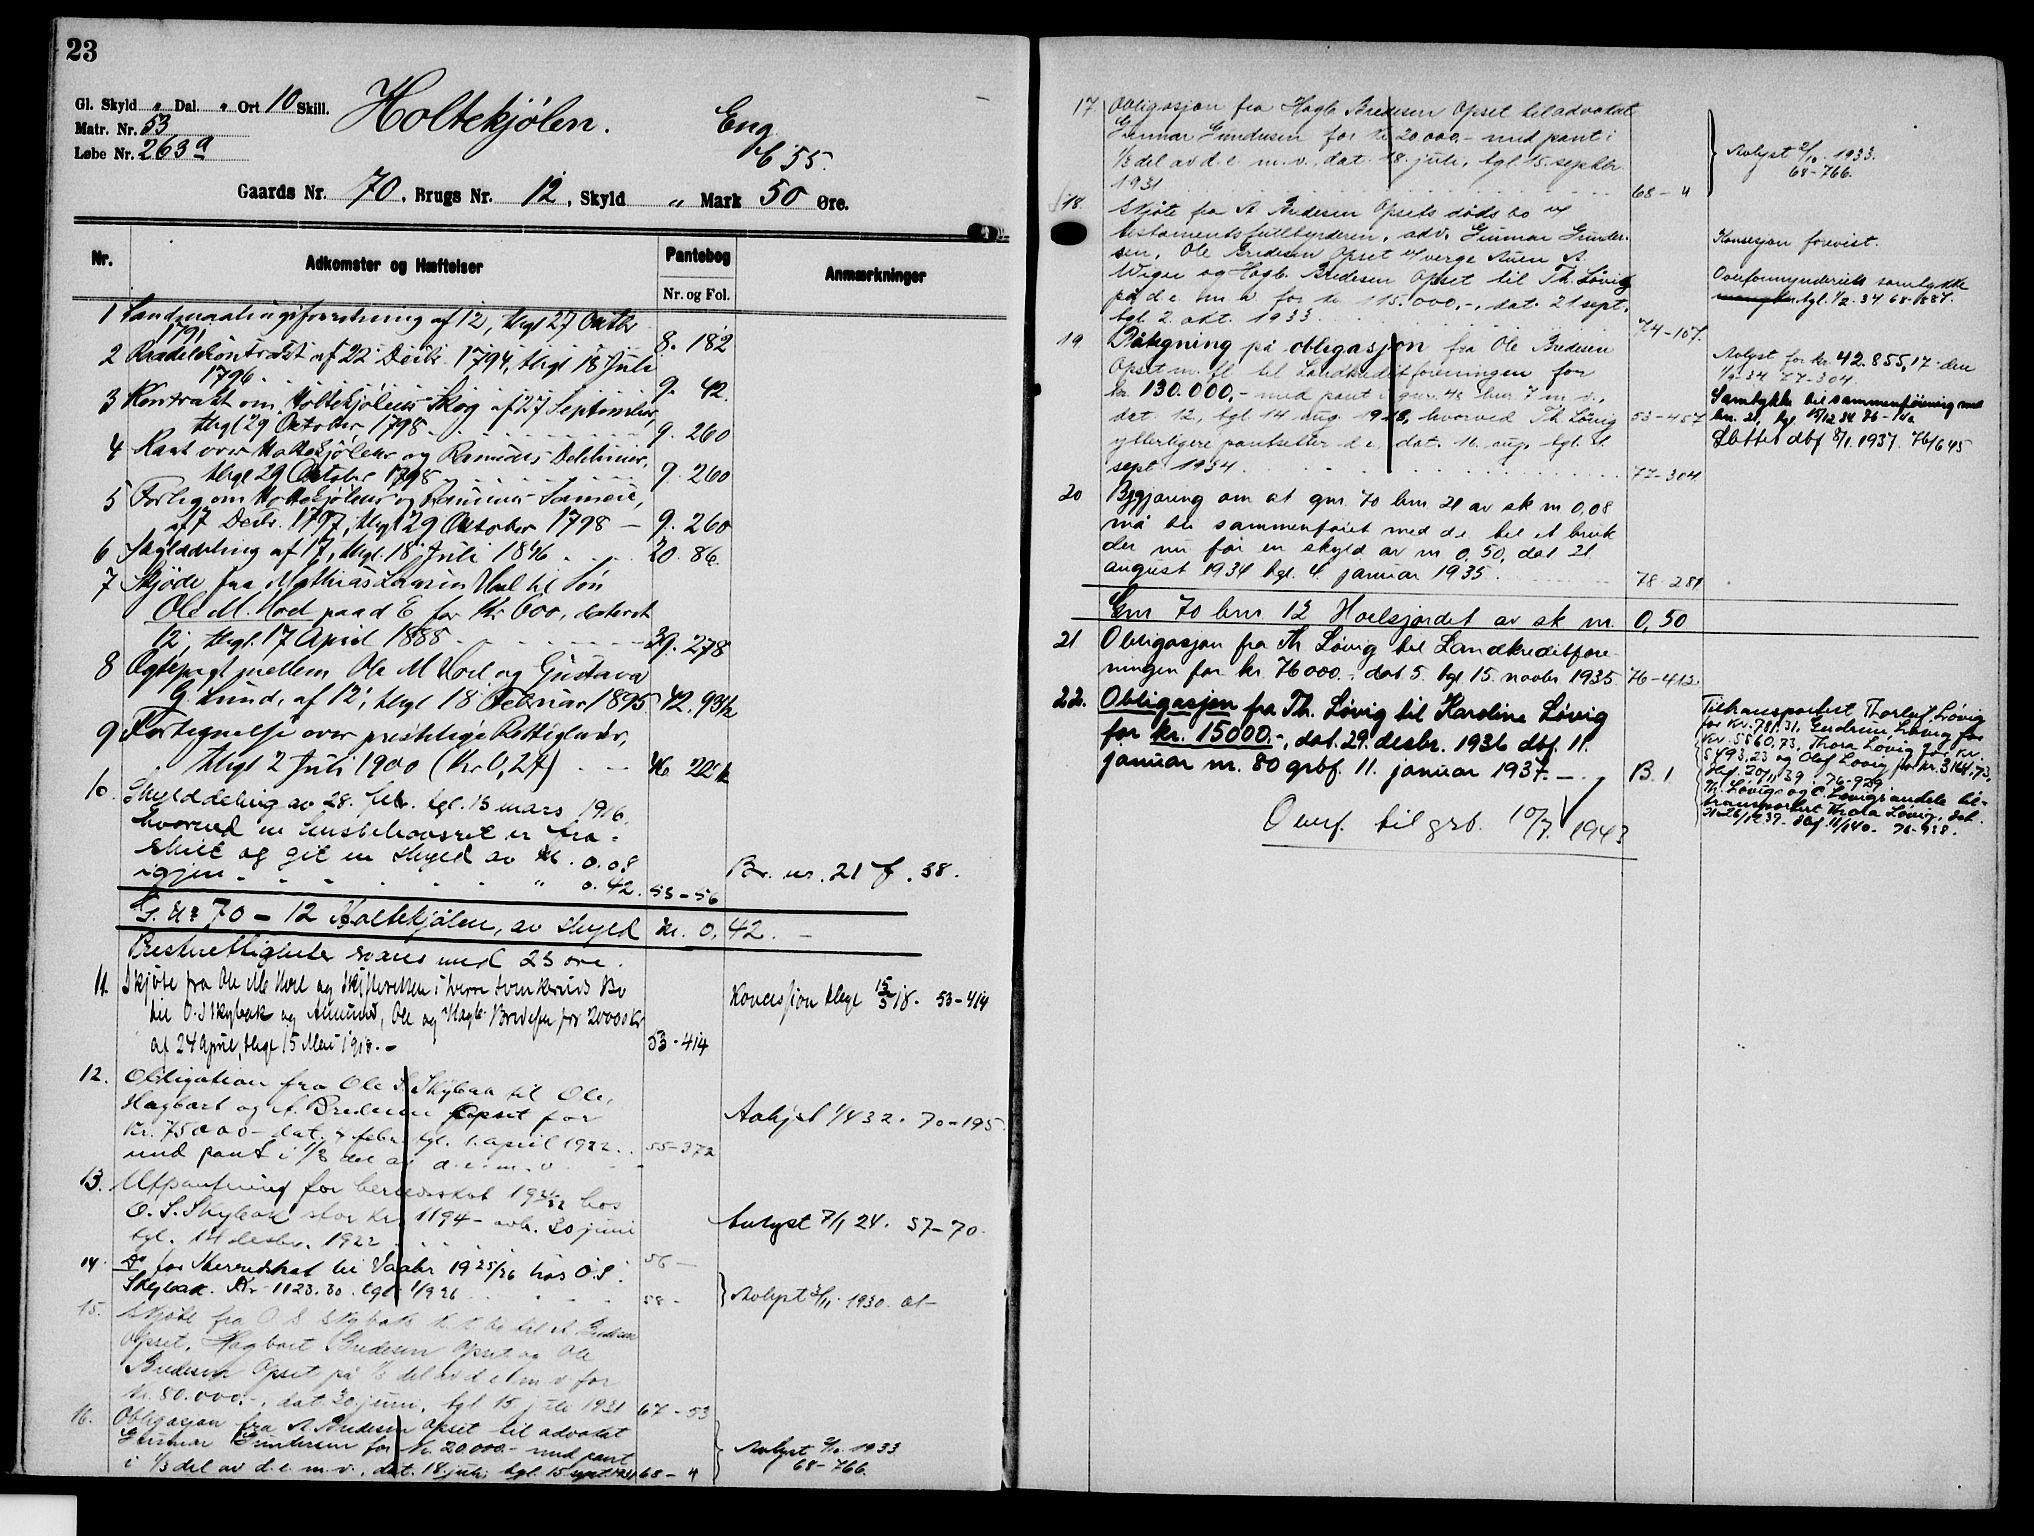 23
Gl. Skyld " Dal. " Ort 10 Skill.
Matr. Nr. 53
Løbe Nr. 263 a
Holtekjølen.
Eng
55.
Gaards Nr. 70, Brugs Nr. 12, Skyld " Mark 50 Øre.
Nr.
Adkomster og Hæftelser
Pantebog
Nr. og Fol.
Anmærkninger
1 Landmaalingsforretning af 12, thgl 27 Oktbr
1791 8. 182
2 Kontrakt af 22 Decbr. 1794, thgl 18 Juli
1796. 9. 42.
3 Kontrakt om Holtekjølens Skog af 27 September,
thgl 29 Oktober 1798 9. 260
4 over Holtekjølens og
thgl 29 Oktober 1798 9. 260
5 Forlig om Holtekjølens og
af 17 Decbr. 1797, thgl 29 Oktober 1798 — 9. 260
6 af 17, thgl. 18 Juli 1846 20. 86.
7 Skjøde fra Mathias Larsen Hoel til Søn
Ole M. Hoel paa d E for Kr 600, dateret
12, thgl. 17 April 1888 39. 278
8 Ægtepagt mellem Ole M Hoel og Gustava
G. Lund, af 12, thgl 18 Februar 1895 42. 93 b
9 Fortegnelse over prestelige Rettigheder,
thgl 2 Juli 1900 (Kr 0,27) 46 222 b
10. Skylddeling av 28. febr. tgl. 15 mars 1916.
hvorved en er fra-
skilt og git en skyld av M. 0.08 Br. nr. 21 f. 38.
igjen " 0.42. 53-56
G. Nr 70 – 12 Holtekjølen, av skyld M. 0,42. —
Presterettigheter svares med 23 øre.
11. Skjøte fra Ole M. Hoel og Skifteretten i Bo
til O. S Skybak og Amund, Ole og Hagb. Bredesen for 20000 Kr
af 24 April, thgl 15 Mai 1918. — 53-414
Koncession thgl 15/5 18. 53-414
12. Obligation fra Ole S. Skybak til Ole,
Hagbart og A. Bredesen Opset for
Kr. 75000 – dat. 4 febr. tgl. 1. april 1922.. 55-372
med pant i 1/3 del av d. e. m. v.
Avlyst 1/4 32. 70-195
13. Utpantning for herredsskat 1921/22 hos
O. S. Skybak stor Kr. 1194 – avh. 30 juni
tgl. 14 desbr. 1922 56 —
Avlyst 7/1 24. 57-70.
14. Do for Herredskat til Vaaler 1925/26 hos O. S.
Skybak. Kr 1123.30. tgl 1/9 26 58 -
Avlyst 3/11 1930. at—
15. Skjøte fra O S Skybak til A Bredesen
Opset, Hagbart Bredesen Opset og Ole
Bredesen Opset på 1/3 del av d e m v for
kr. 80.000,-, dat. 30 juni, tgl 15 juli 1931 67-53
16. Obligasjon fra A Bredesen Opset til advokat
Gunnar Gundersen for kr. 20.000.– med pant
i 1/3 del av d. e. m. v., dat. 18. juli, tgl. 15 sept. 1931 68-4
Avlyst 2/10 1933
68-766.
17 Obligasjon fra Hagb Bredesen Opset til advokat
Gunnar Gundesen for kr 20000.– med pant i
1/3 del av d. e. m. v. dat. 18. juli, tgl. 15. septbr.
1931 68-4
Avlyst 2/10 1933.
68-766.
18. Skjøte fra A Bredesen Opsets dødsbo v/
testamentsfullbyrderen, adv. Gunnar Gunder-
sen, Ole Bredesen Opset v/ verge Auen A
Wiger og Hagb. Bredesen Opset til Th. Løvig
på d. e. m. v. for kr 115.000,-, dat. 21 sept.
tgl 2. okt. 1933. 74-107.
Konsesjon forevist.
Overformynderiets samtykke
tgl. 1/2. 34 68-887.
19 Påtegning på obligasjon fra Ole Bredesen
Opset m. fl til Landkreditforeningen for
kr. 130.000,- med pant i gnr. 43 bnr. 7 m. v.
dat. 12, tgl 14 aug 1918, hvorved Th. Løvig 53-457
ytterligere pantsetter d e, dat. 11. aug. tgl. 1
sept 1934 77-304
Avlyst for kr. 42.855,17 den
1/9-34 77-304.
Samtykke til sammenføining med
bnr. 21, tgl 15/12 34 76-140
Slettet dbf 8/1. 1937. 76/645
20 Begjæring om at gnr. 70 bnr 21 av sk m 0,08
må bli sammenføiet med d. e. til et bruk
der nu får en skyld av m 0,50, dat 21
august 1934 tgl. 4. januar 1935. 78-281
Gnr 70 bnr 12 Hoelsjordet av sk m. 0,50
21 Obligasjon fra Th Løvig til Landkreditfore-
ningen for kr. 76000.-, dat 5. tgl 15. novbr 1935 76-412.
22. Obligasjon fra Th. Løvig til Karoline Løvig
for kr. 15000.-, dat. 29. desbr. 1936 dbf. 11.
januar nr. 80 grbf. 11. januar 1937. — B. 1
Tiltransportert Thorleif Løvig
for Kr. 781.31, Gudrun Løvig for
Kr. 5560,73, Thora Løvig for Kr.
5493.23 og Olaf Løvig for kr. 3164,73,
dbf. 20/11 39. 76-929
Th. Løvigs og O. Løvigs andele til-
transportert Thora Løvig, dat.
26/12 39. dbf 11/1 40. 76-938.
Overf. til grb. 10/7 1943